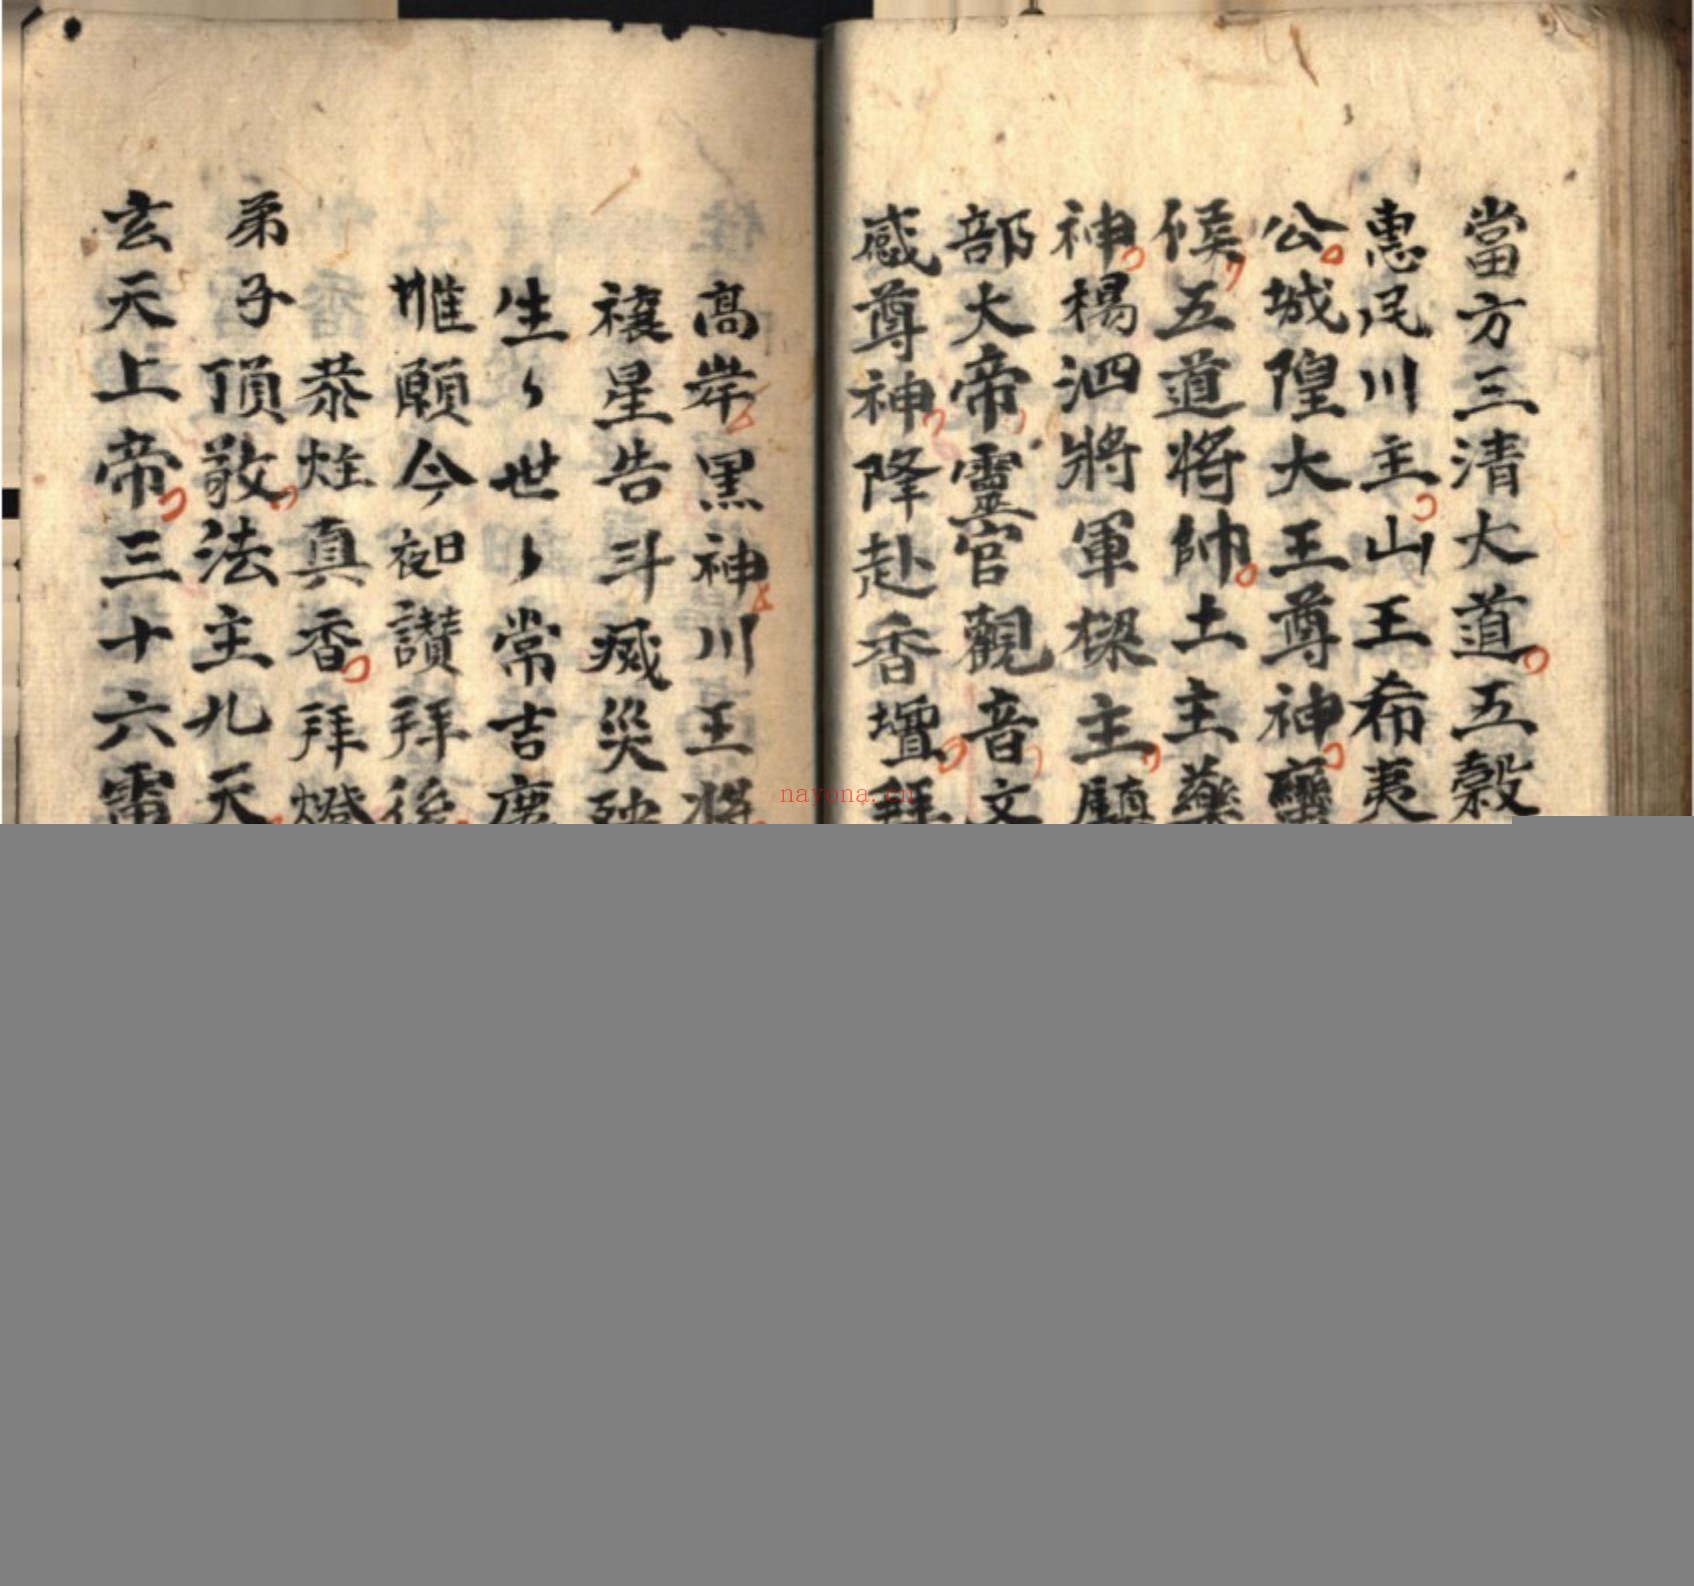 當方三清大道五穀
惠民川主山王希夷
公城隍大王尊神
候五道將帥土主藥
神楊泗將軍樑主
部大帝靈官觀音文
感尊神降赴香壇拜
高岸黑神川王將
禳星告斗滅災殃
生〻世〻常吉慶
惟願今夜日讃拜後
恭炷真香拜燈
弟子頂敬法主九天
玄天上帝三十六雷
nayona.cn